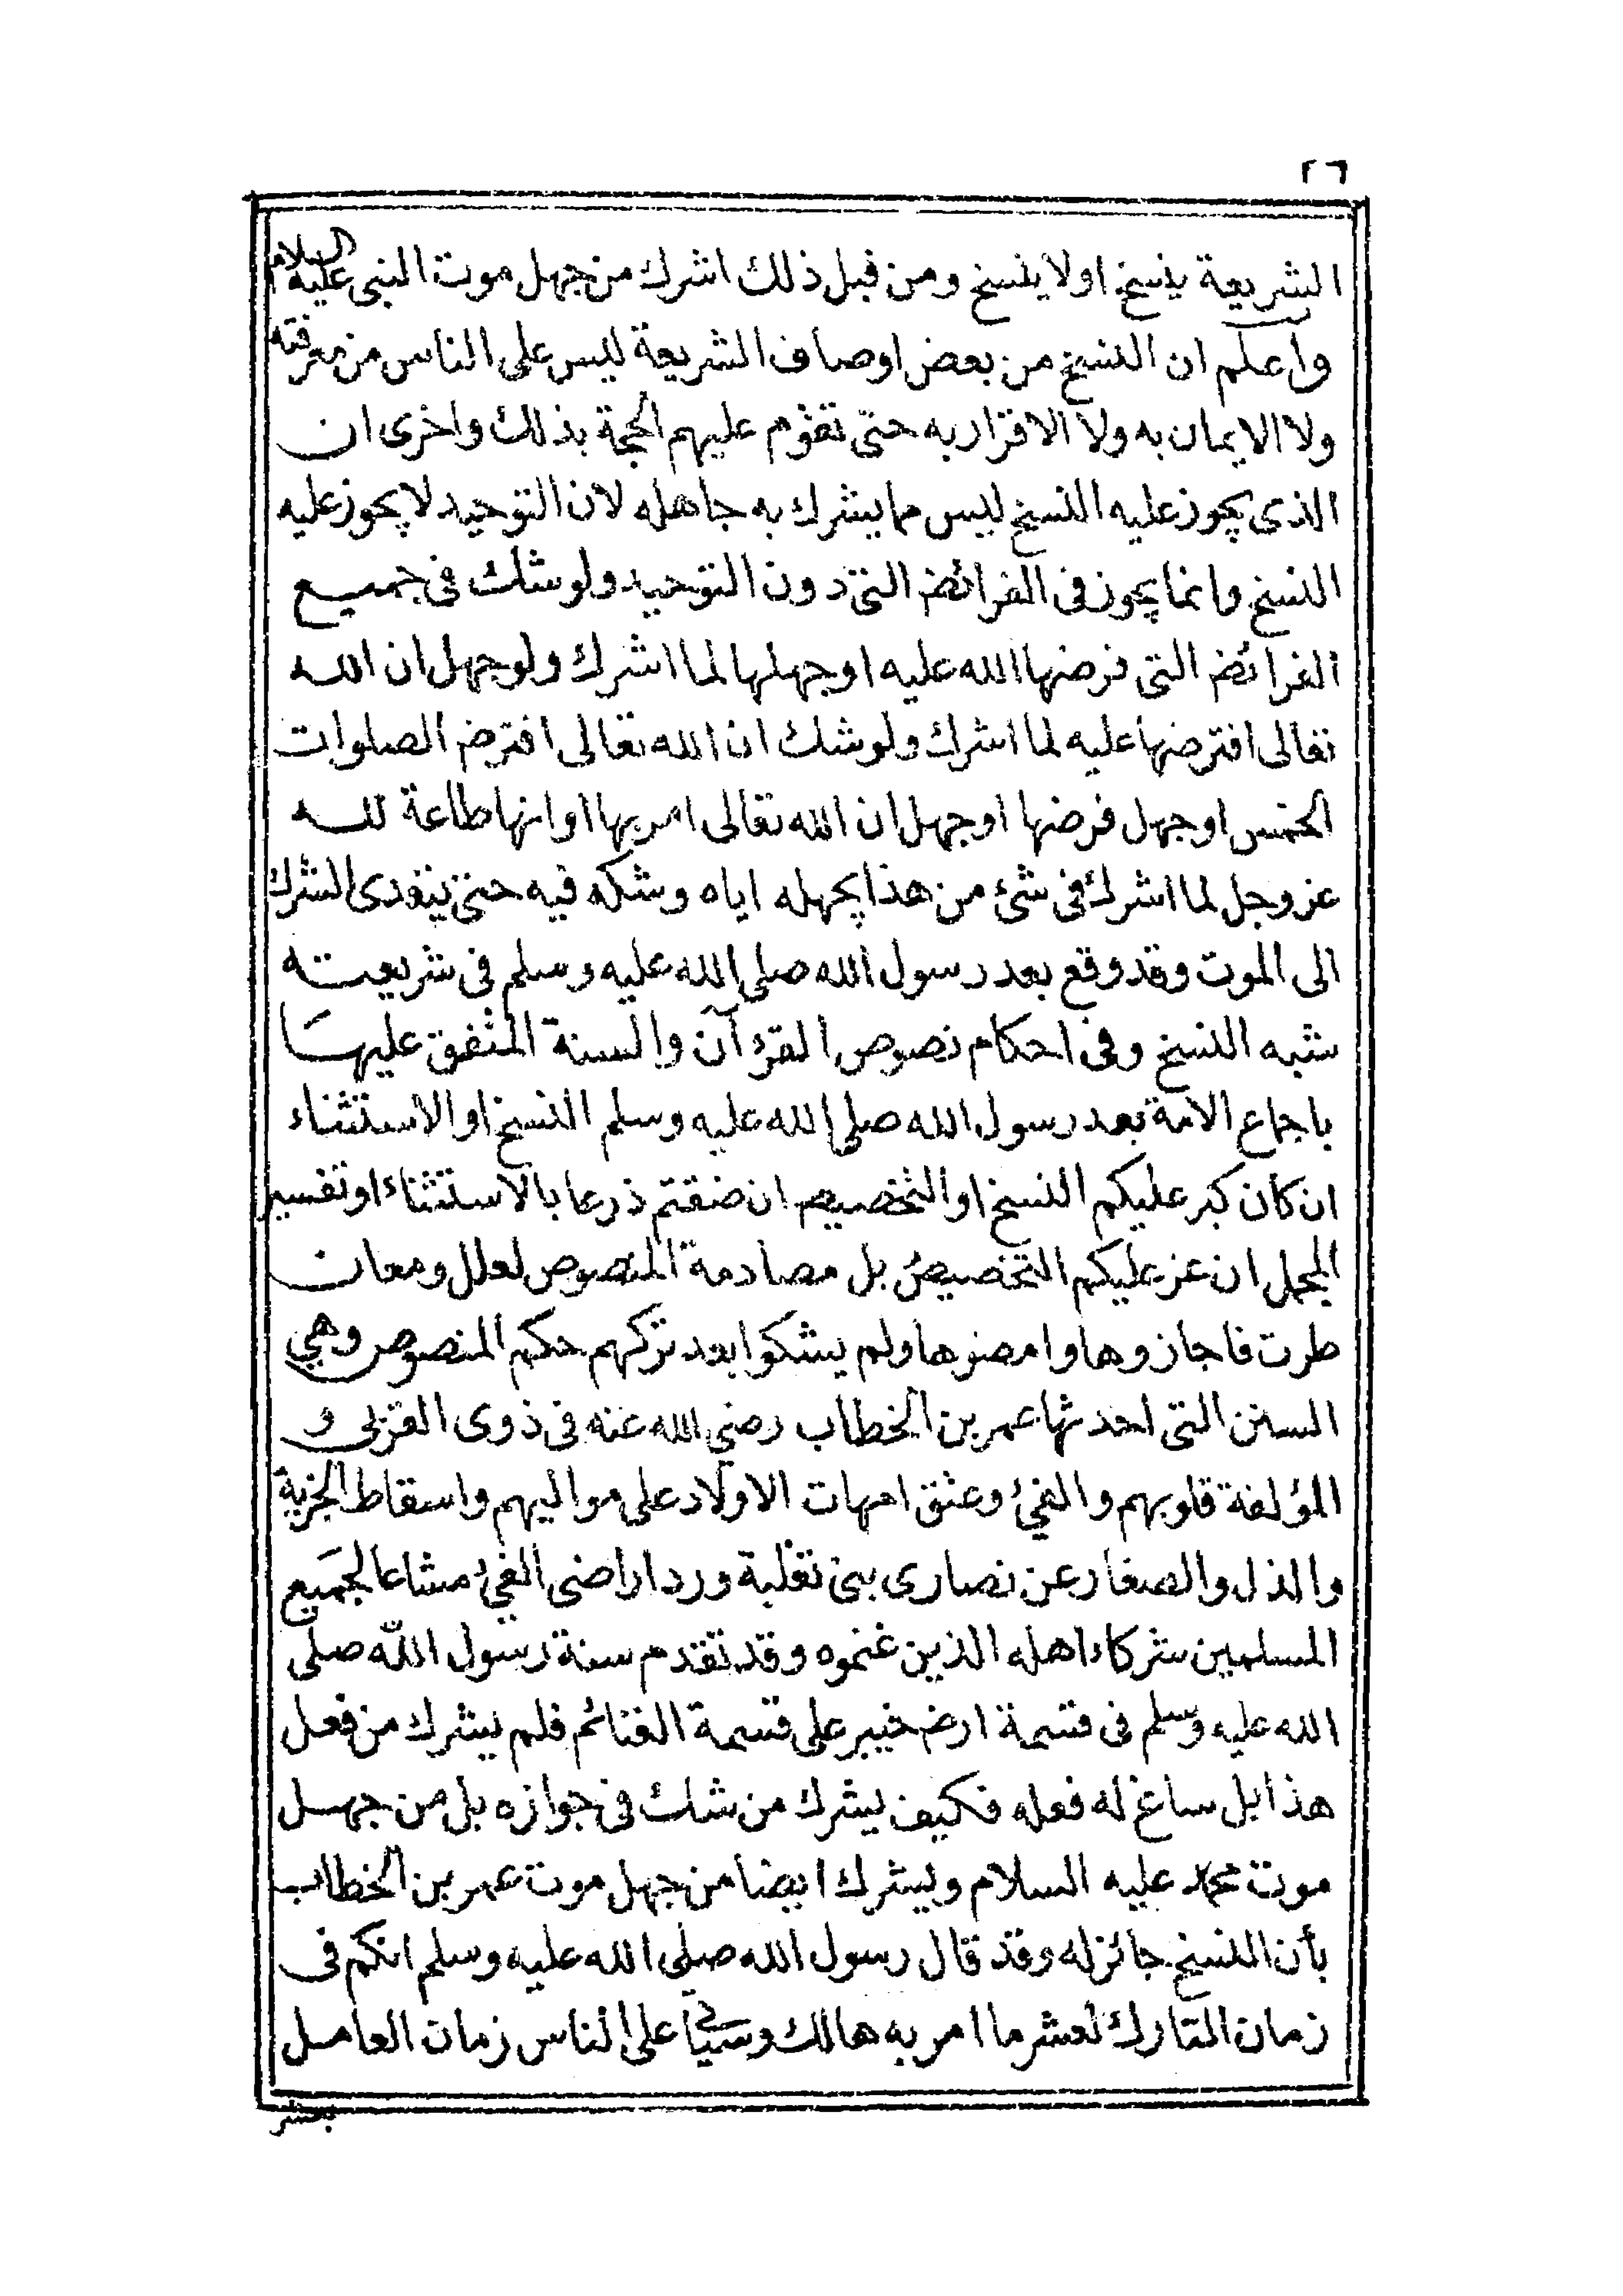 ٢٦
الشريعة ينسخ اولا ينسخ ومن قبل ذلك اشرك من جهل موت النبى عليه السلام
وأعلم ان النسخ من بعض اوصاف الشريعة ليس على الناس من معرفته
ولا الايمان به ولا الاقرار به حتى تقوم عليهم الحجة بذلك واخرى ان
الذى يجوز عليه النسخ ليس مما يشرك به جاهله لان التوحيد لا يجوز عليه
النسخ وانما يجوز فى الفرائض التى دون التوحيد ولو شك فى جميع
الفرائض التى فرضها الله عليه اوجهلها لما اشرك ولو جهل ان الله
تعالى افترضها عليه لما اشرك ولو شك ان الله تعالى افترض الصلوات
الخمس اوجهل فرضها اوجهل ان الله تعالى امر بها او انها طاعة لله
عز وجل لما اشرك فى شئ من هذا بجهله اياه وشكه فيه حتى يتعدى الشرك
الى الموت وقد وقع بعد رسول الله صلى الله عليه وسلم فى شريعته
شبه النسخ وفى احكام نصوص القرءآن والسنة المتفق عليها
باجماع الامة بعد رسول الله صلى الله عليه وسلم النسخ او الاستثناء
ان كان كبر عليكم النسخ او التخصيص ان ضقتم ذرعا بالاستثناء او تفسير
المجمل ان عز عليكم التخصيص بل مصادمة المنصوص لعلل ومعان
طرت فاجازوها وامضوها ولم يشكوا بعد تركهم حكم المنصوص وهي
السنن التى احدثها عمر بن الخطاب رضي الله عنه فى ذوى القربى و
المؤلفة قلوبهم والفيء وعتق امهات الاولاد على مواليهم واسقاط الجزية
والذل والصغار عن نصارى بنى تغلبة ورد اراضى الفيء مشاعا لجميع
المسلمين شركاء اهله الذين غنموه وقد تقدم سنة رسول الله صلى
الله عليه وسلم فى قسمة ارض خيبر على قسمة الغنائم فلم يشرك من فعل
هذا بل ساغ له فعله فكيف يشرك من شك فى جوازه بل من جهل
موت محمد عليه السلام ويشرك ايضا من جهل موت عمر بن الخطاب
بأن النسخ جائز له وقد قال رسول الله صلى الله عليه وسلم انكم فى
زمان التارك لعشر ما امر به هالك وسيأتي على الناس زمان العامل
بعشر